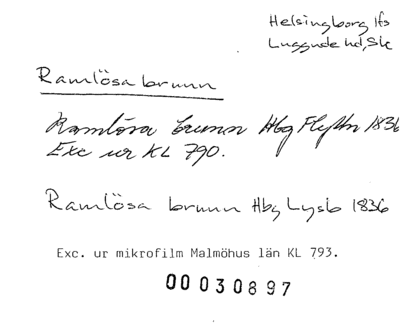 Helsingborg lfs
Luggude hd, Sk
Ramlösa brunn
Ramlösa brunn Hbg Flfsbr 1836
Exc ur KL 790.
Ramlösa brunn Hbg Lysb 1836
Exc. ur mikrofilm Malmöhus län KL 793.
00030897